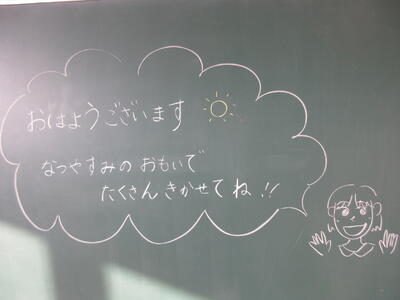 おはようございます
なつやすみの おもいで
たくさん きかせて ね!!